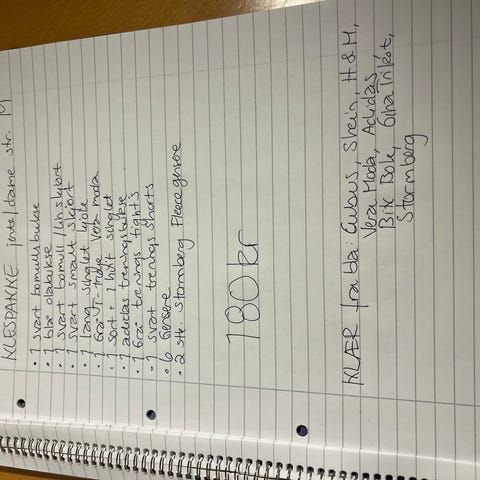 KLESPAKKE jente/dame str. M
• 1 svart bomullsbukse
• 1 blå olabukse
• 1 svart bomull/ull skjørt
• 1 svart smalt skjørt
• 1 lang singlet kjole
• 1 Grå T-trøye Vera moda
• 1 sort + 1 hvit singlet
• 1 adidas treningsbukse
• 1 Grå trenings tights
• 1 svart trenings shorts
• 6 Gensere
• 2 stk Stormberg Fleece gensere
180 kr
KLÆR fra bla: Cubus, Shein, H&M,
Vera Moda, Adidas
Bik Bok, Gina Trikot,
Stormberg